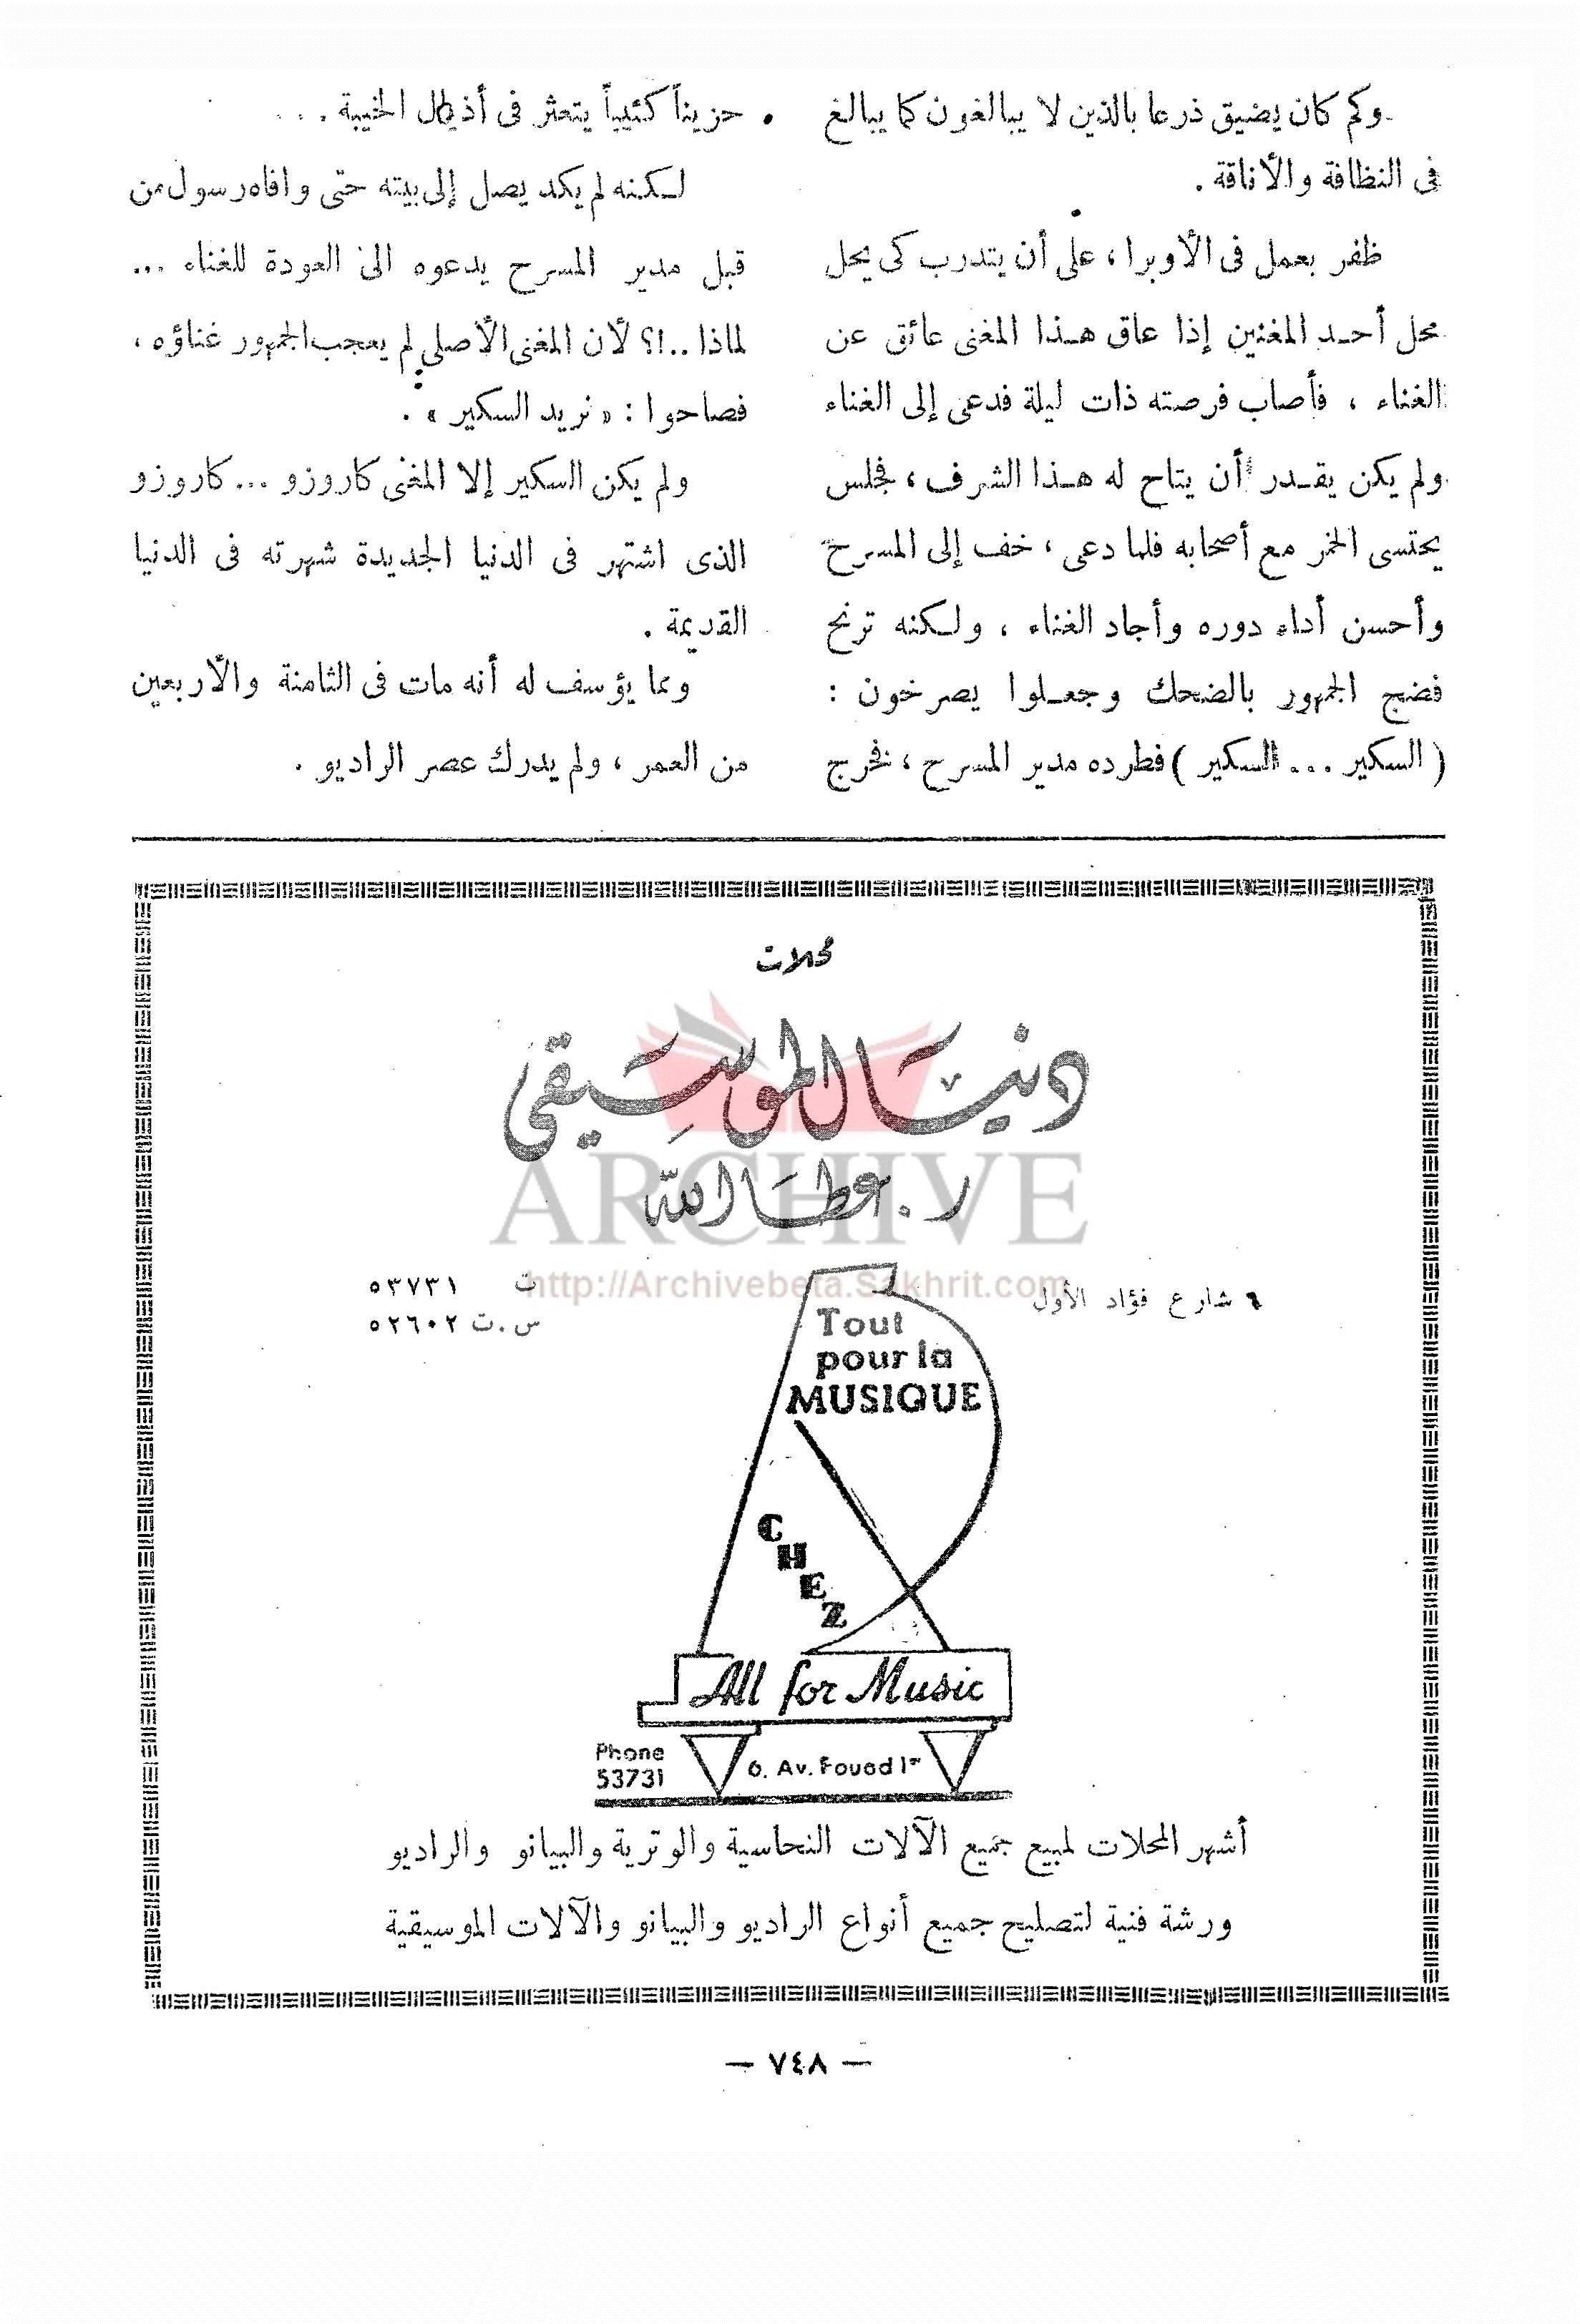 وكم كان يضيق ذرعا بالذين لا يبالغون كما يبالغ
فى النظافة والأناقة .
ظفر بعمل فى الأوبرا ، على أن يتدرب كى يحل
محل أحد المغنين إذا عاق هذا المغنى عائق عن
الغناء ، فأصاب فرصته ذات ليلة فدعى إلى الغناء
ولم يكن يقدر أن يتاح له هذا الشرف ، فجلس
يحتسى الخمر مع أصحابه فلما دعى ، خف إلى المسرح
وأحسن أداء دوره وأجاد الغناء ، ولكنه ترنح
فضج الجمهور بالضحك وجعلوا يصرخون :
( السكير ... السكير ) فطرده مدير المسرح ، فخرج
حزيناً كئيباً يتعثر فى أذيال الخيبة ...
لكنه لم يكد يصل إلى بيته حتى وافاه رسول من
قبل مدير المسرح يدعوه الى العودة للغناء ...
لماذا ..!؟ لأن المغنى الأصلى لم يعجب الجمهور غناؤه ،
فصاحوا : « نريد السكير » .
ولم يكن السكير إلا المغنى كاروزو ... كاروزو
الذى اشتهر فى الدنيا الجديدة شهرته فى الدنيا
القديمة .
ومما يؤسف له أنه مات فى الثامنة والأربعين
من العمر ، ولم يدرك عصر الراديو .
محلات
دنيا الموسيقى
ر . عطا الله
ARCHIVE
http://Archivebeta.Sakhrit.com
٦ شارع فؤاد الأول
ت ٥٣٧٣١
س . ت ٥٢٦٠٢
Tout
pour la
MUSIQUE
CHEZ
All for Music
Phone
53731
6. Av. Fouad 1er
أشهر المحلات لمبيع جميع الآلات النحاسية والوترية والبيانو والراديو
ورشة فنية لتصليح جميع أنواع الراديو والبيانو والآلات الموسيقية
— ٧٤٨ —